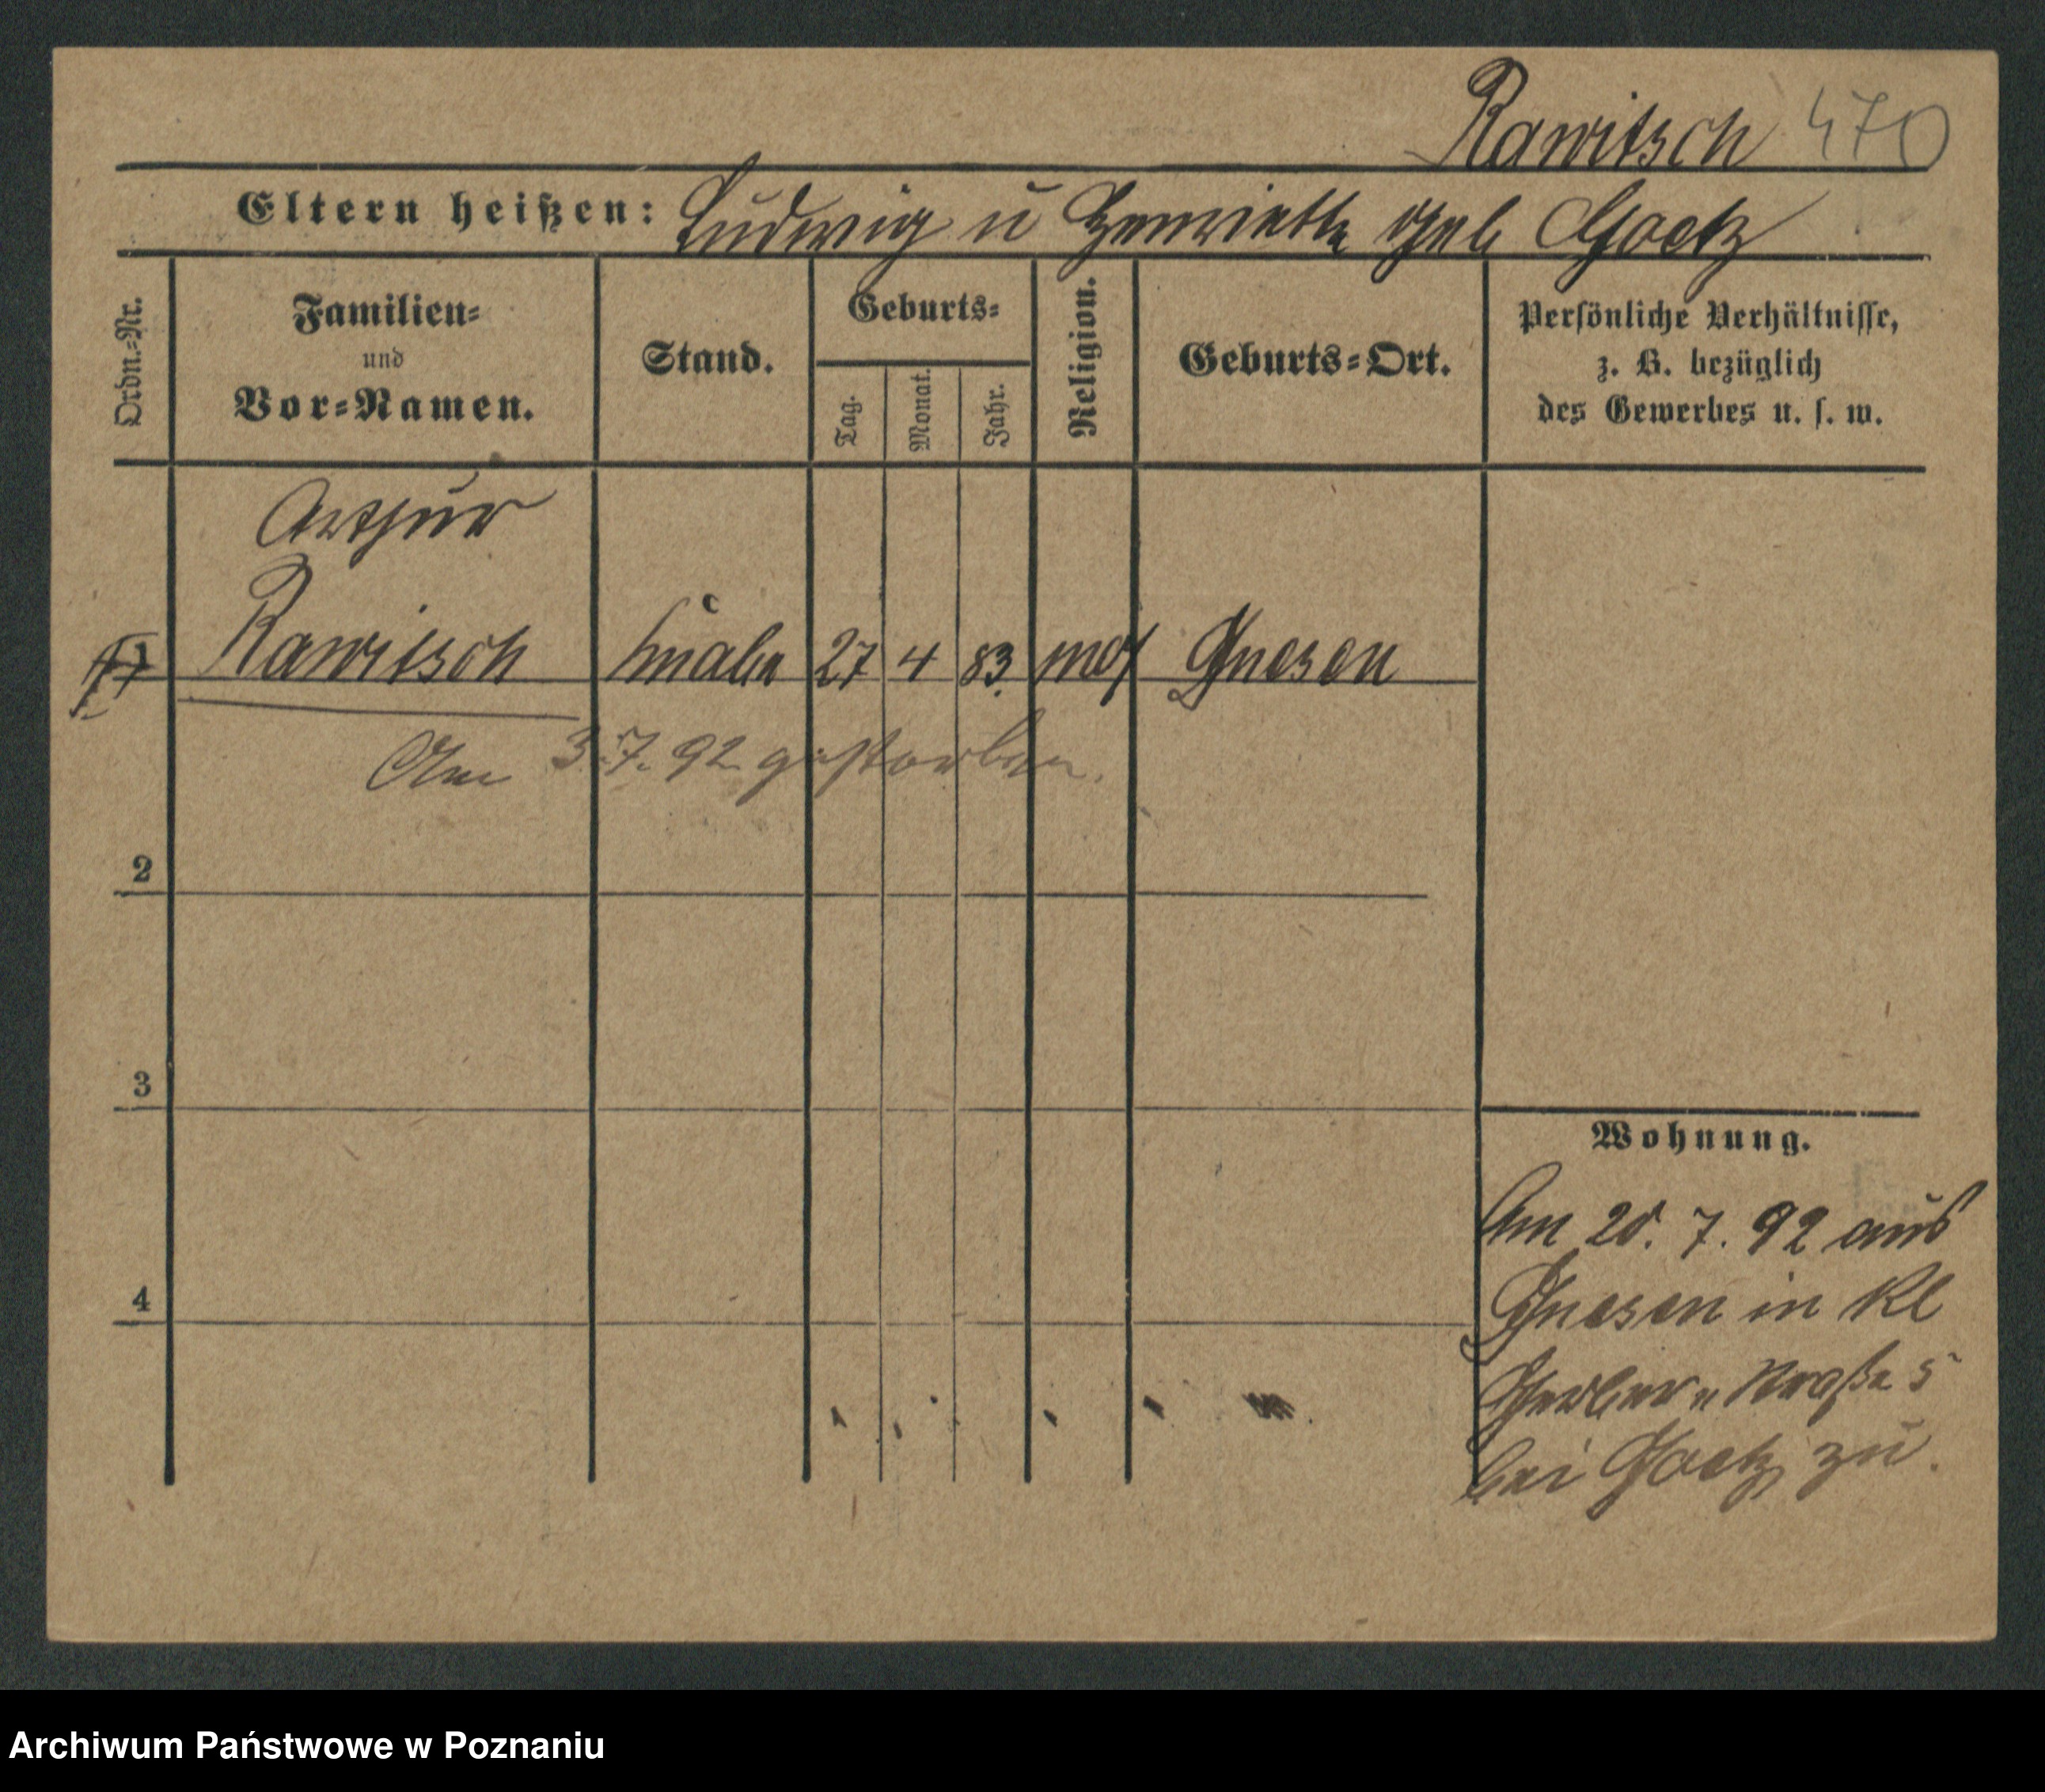 Rawitsch 470
Eltern heißen: Ludwig u Henriette geb Goetz
Ordn.-Nr.
Familien-
und
Vor-Namen.
Stand.
Geburts-
Tag.
Monat.
Jahr.
Religion.
Geburts-Ort.
Persönliche Verhältnisse,
z. B. bezüglich
des Gewerbes u. s. w.
Arthur
1 Rawitsch Knabe 27 4 83. mos Gnesen
Am 3.7.92 gestorben.
2
3
4
Wohnung.
Am 20. 7. 92 aus
Gnesen in Kl
Gerber Straße 5
bei Goetz zu.
Archiwum Państwowe w Poznaniu